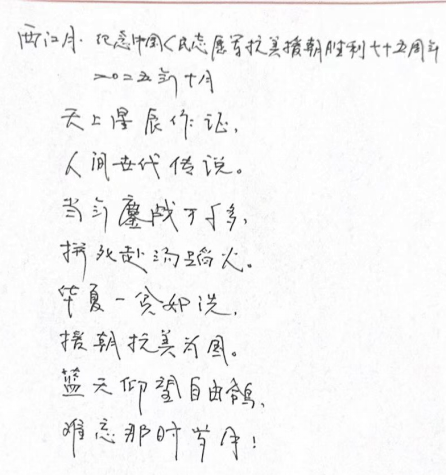 西江月·纪念中国人民志愿军抗美援朝胜利七十五周年
二〇二五年十月
天上星辰作证，
人间世代传说。
当年鏖战干戈多，
拼死赴汤蹈火。
华夏一贫如洗，
援朝抗美为图。
蓝天仰望自由鸽，
难忘那时岁月！